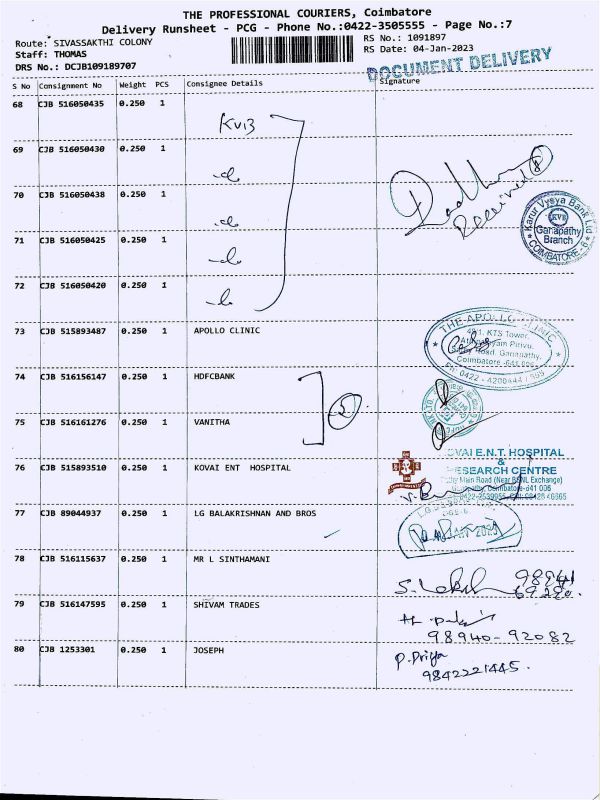 THE PROFESSIONAL COURIERS, Coimbatore
Delivery Runsheet - PCG - Phone No.:0422-3505555 - Page No.:7
Route: SIVASSAKTHI COLONY
RS No.: 1091897
Staff: THOMAS
RS Date: 04-Jan-2023
DRS No.: DCJB109189707
DOCUMENT DELIVERY
S No Consignment No Weight PCS Consignee Details Signature
68 CJB 516050435 0.250 1 KVB
69 CJB 516050430 0.250 1
70 CJB 516050438 0.250 1
Received
Karur Vysya Bank Ltd
KVB
Ganapathy
Branch
COIMBATORE - 6
71 CJB 516050425 0.250 1
72 CJB 516050420 0.250 1
73 CJB 515893487 0.250 1 APOLLO CLINIC
THE APOLLO CLINIC
KTS Tower,
Road, Ganapathy,
Coimbatore
74 CJB 516156147 0.250 1 HDFCBANK
2
75 CJB 516161276 0.250 1 VANITHA
76 CJB 515893510 0.250 1 KOVAI ENT HOSPITAL
OVAI E.N.T. HOSPITAL
&
ESEARCH CENTRE
Main Road (Near BSNL Exchange)
77 CJB 89044937 0.250 1 LG BALAKRISHNAN AND BROS
78 CJB 516115637 0.250 1 MR L SINTHAMANI
79 CJB 516147595 0.250 1 SHIVAM TRADES
98940-92082
80 CJB 1253301 0.250 1 JOSEPH
P. Priya
9842221445.